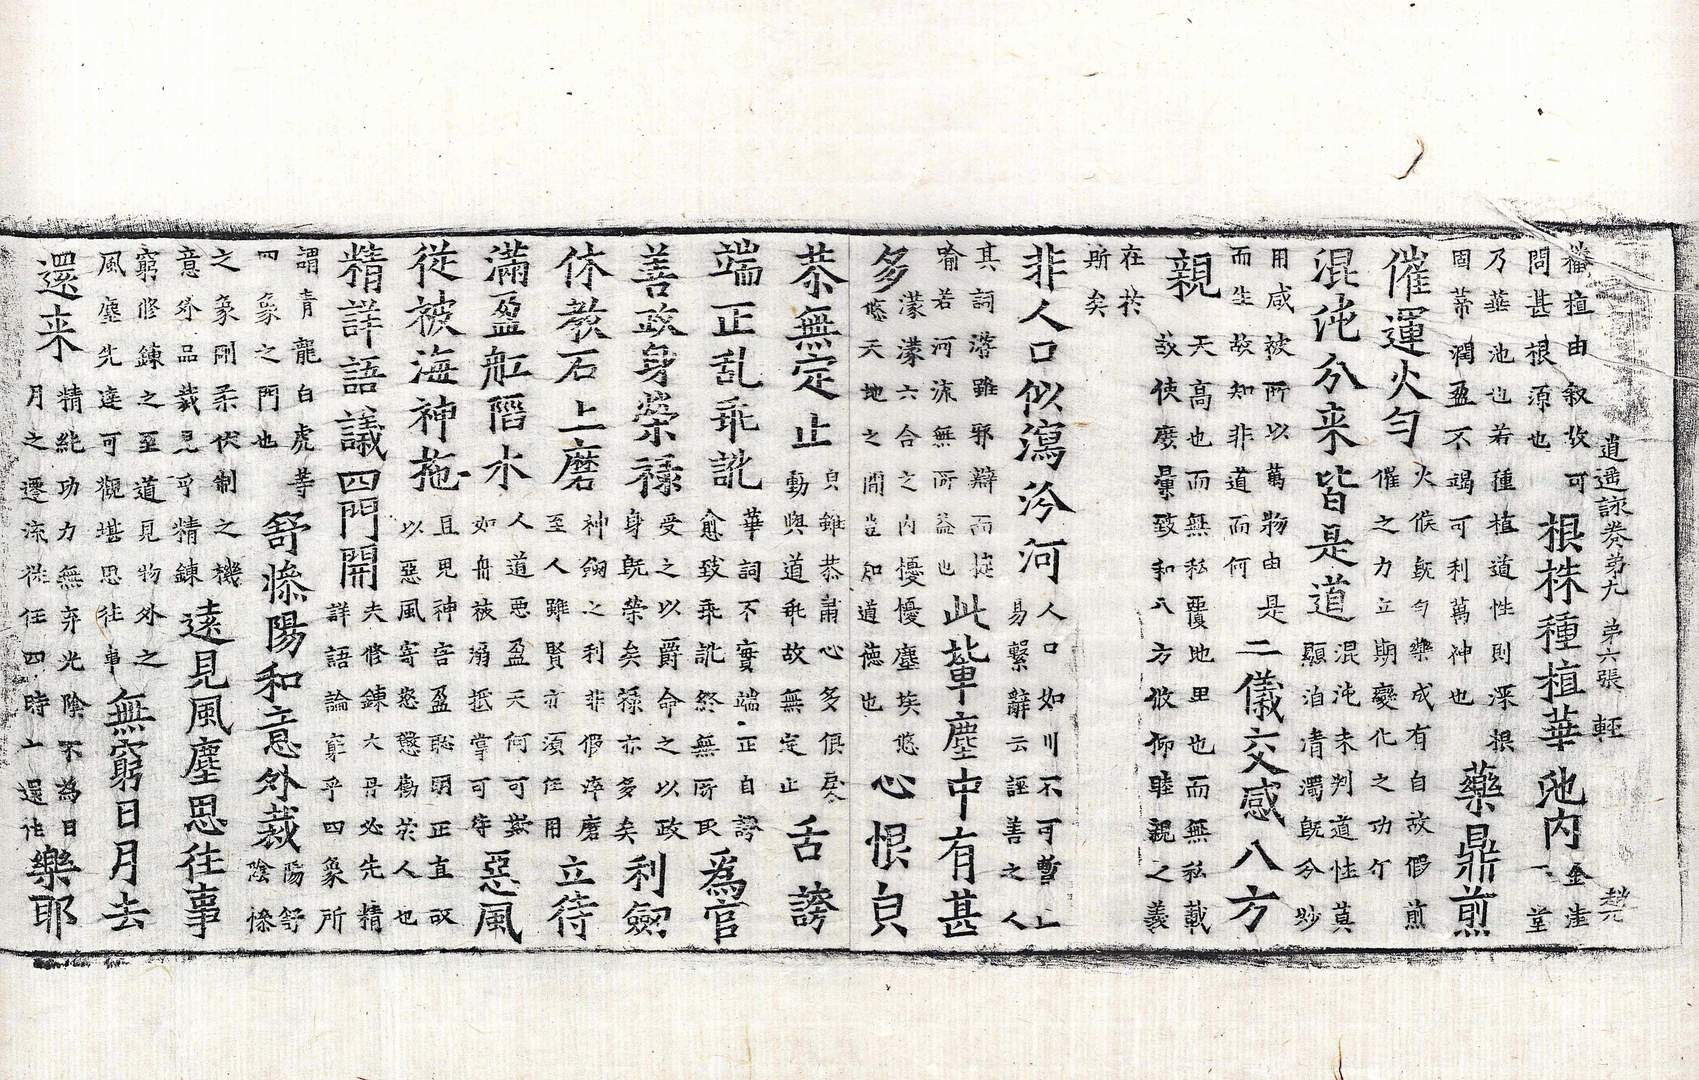 逍遥詠卷第九　第六張　輕
栽植由叙故可根株種植華池內金洼
問甚根源也　一堂
乃華池也若種植道性則深根藥鼎煎
固蔕潤盈不竭可利萬神也
催運火勻火候旣勻藥成有自故假煎
催之力立期變化之功介
混沌分来皆是道混沌未判道性莫
顯洎清濁旣分妙
用咸被所以萬物由是二儀交感八方
而生故知非道而何
親天高也而無私覆地里也而無私載
故使廢彙致和八方攸仰睦親之義
在於
斯矣
非人口似瀉汵河人口如川不可暫上
易繫辭云誣善之人
其詞游雖邪辯而從此輩塵中有甚
喻若河流無所益也
多濛濛六合之内憂憂塵埃悠心恨貞
悠天地之間豈知道德也
恭無定止貞雖恭肅心多俱戾舌誇
動與道乖故無定止
端正乱乖訛華詞不實端正自誇為官
愈致乖訛終無所取
善政身榮禄受之以爵命之以政利劒
身旣榮矣禄亦多矣
休教石上磨神劒之利非假淬磨立待
至人雖賢亦須任用
滿盈舡陷水人道惡盈天何可欺惡風
如舟被溺抵掌可待
従被海神拖豆見神害盈聡明正直故
以惡風寄怒懲傷於人也
精詳語議四門開夫修錬大丹必先精
詳語論窮乎四象所
謂青龍白虎等舒慘陽和意外裁陽舒
四象之門也　陰慘
之象剛柔伏制之機遠見風塵思往事
意外品裁見乎精錬
窮修錬之至道見物外之無窮日月去
風塵先達可觀堪思往事
還来精純功力無弃光陰不為日樂耶
月之遷流從任四時亠還往